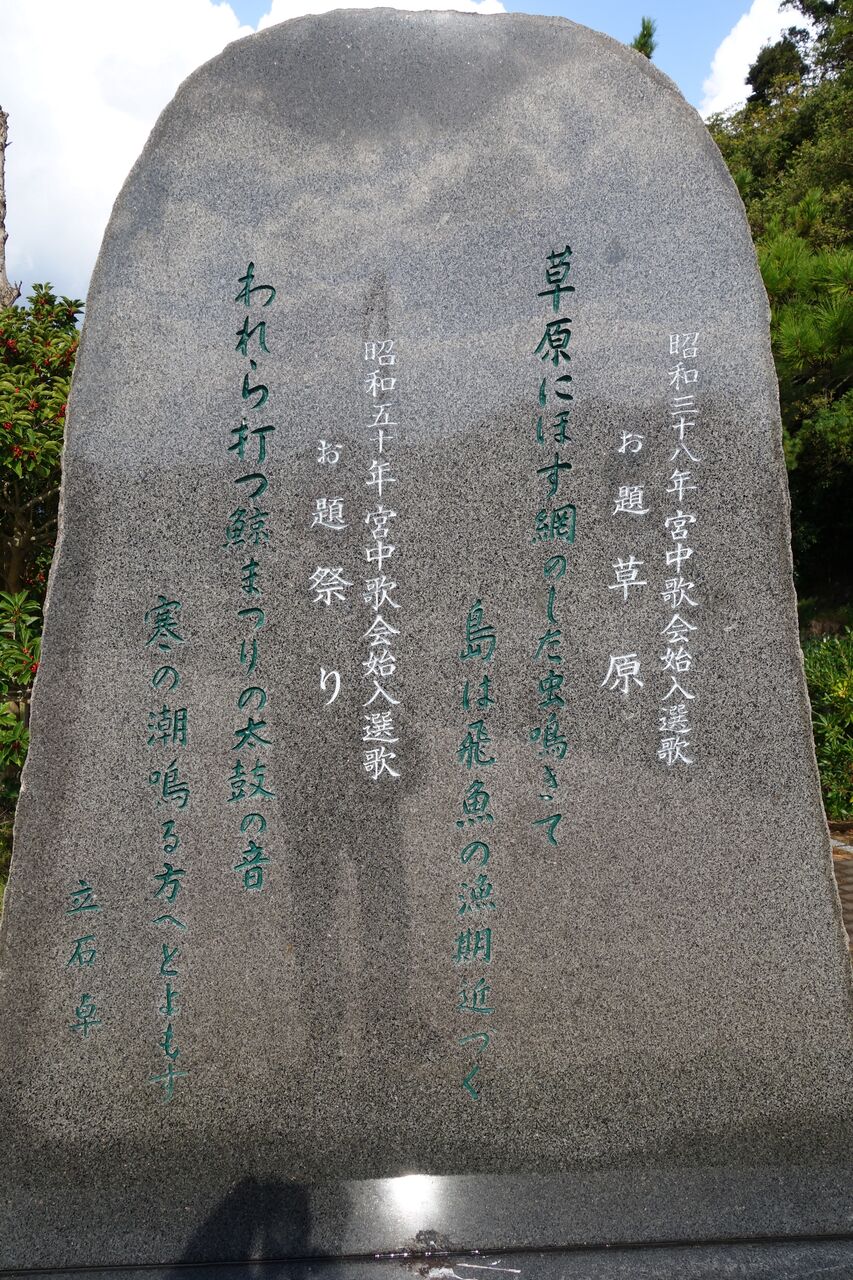 昭和三十八年宮中歌会始入選歌
お題草原
草原にほす網のした虫鳴きて
島は飛魚の漁期近づく
昭和五十年宮中歌会始入選歌
お題祭り
われら打つ鯨まつりの太鼓の音
寒の潮鳴る方へとよもす
立石卓